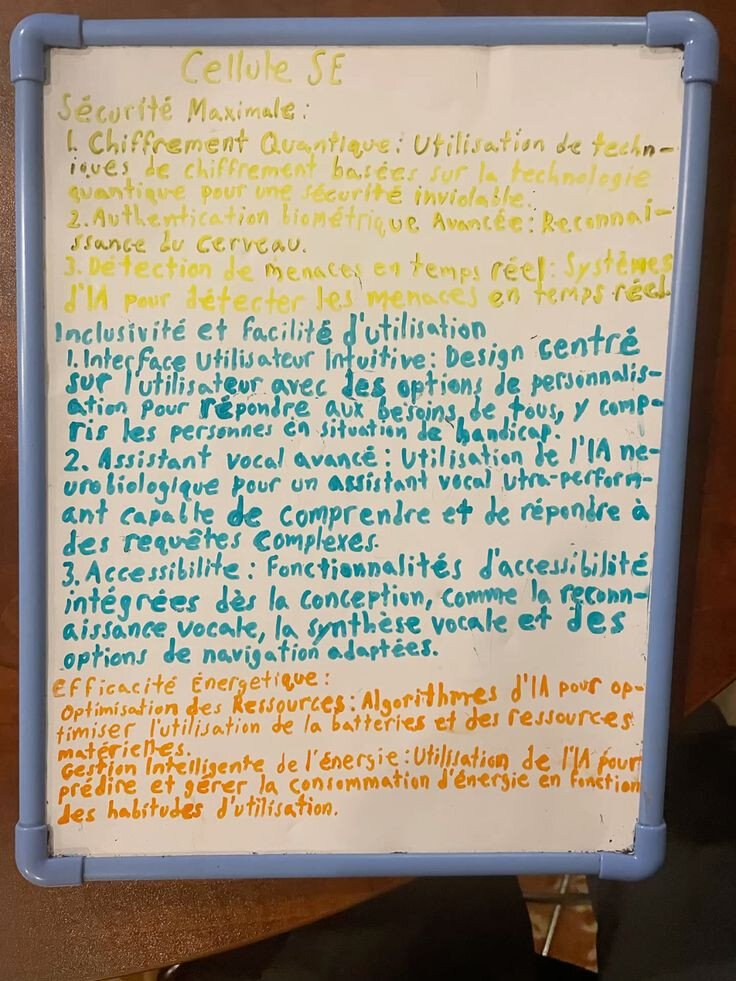 Cellule SE
Sécurité Maximale:
1. Chiffrement Quantique: Utilisation de techn-
iques de chiffrement basées sur la technologie
quantique pour une sécurité inviolable.
2. Authentication biométrique Avancée: Reconnai-
ssance du cerveau.
3. Détection de menaces en temps réel: Systèmes
d'IA pour détecter les menaces en temps réel.
Inclusivité et facilité d'utilisation
1. Interface Utilisateur Intuitive: Design centré
sur l'utilisateur avec des options de personnalis-
ation pour répondre aux besoins de tous, y comp-
ris les personnes en situation de handicap.
2. Assistant vocal avancé: Utilisation de l'IA ne-
urobiologique pour un assistant vocal utra-perform-
ant capable de comprendre et de répondre à
des requêtes complexes.
3. Accessibilite: Fonctionnalités d'accessibilité
intégrées dès la conception, comme la reconn-
aissance vocale, la synthèse vocale et des
options de navigation adaptées.
Efficacité Énergetique:
Optimisation des Ressources: Algorithmes d'IA pour op-
timiser l'utilisation de la batteries et des ressources
matérielles.
Gestion Intelligente de l'énergie: Utilisation de l'IA pour
prédire et gérer la consommation d'énergie en fonction
des habitudes d'utilisation.